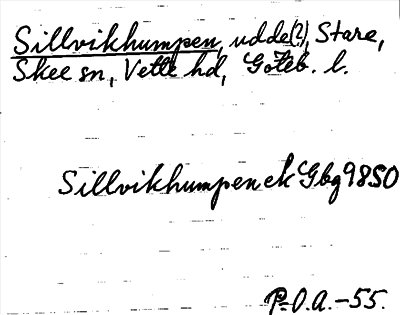 Sillvikhumpen, udde(?), Stare,
Skee sn, Vette hd, Göteb. l.
Sillvikhumpen ek Gbg 9850
P-O.A. -55.